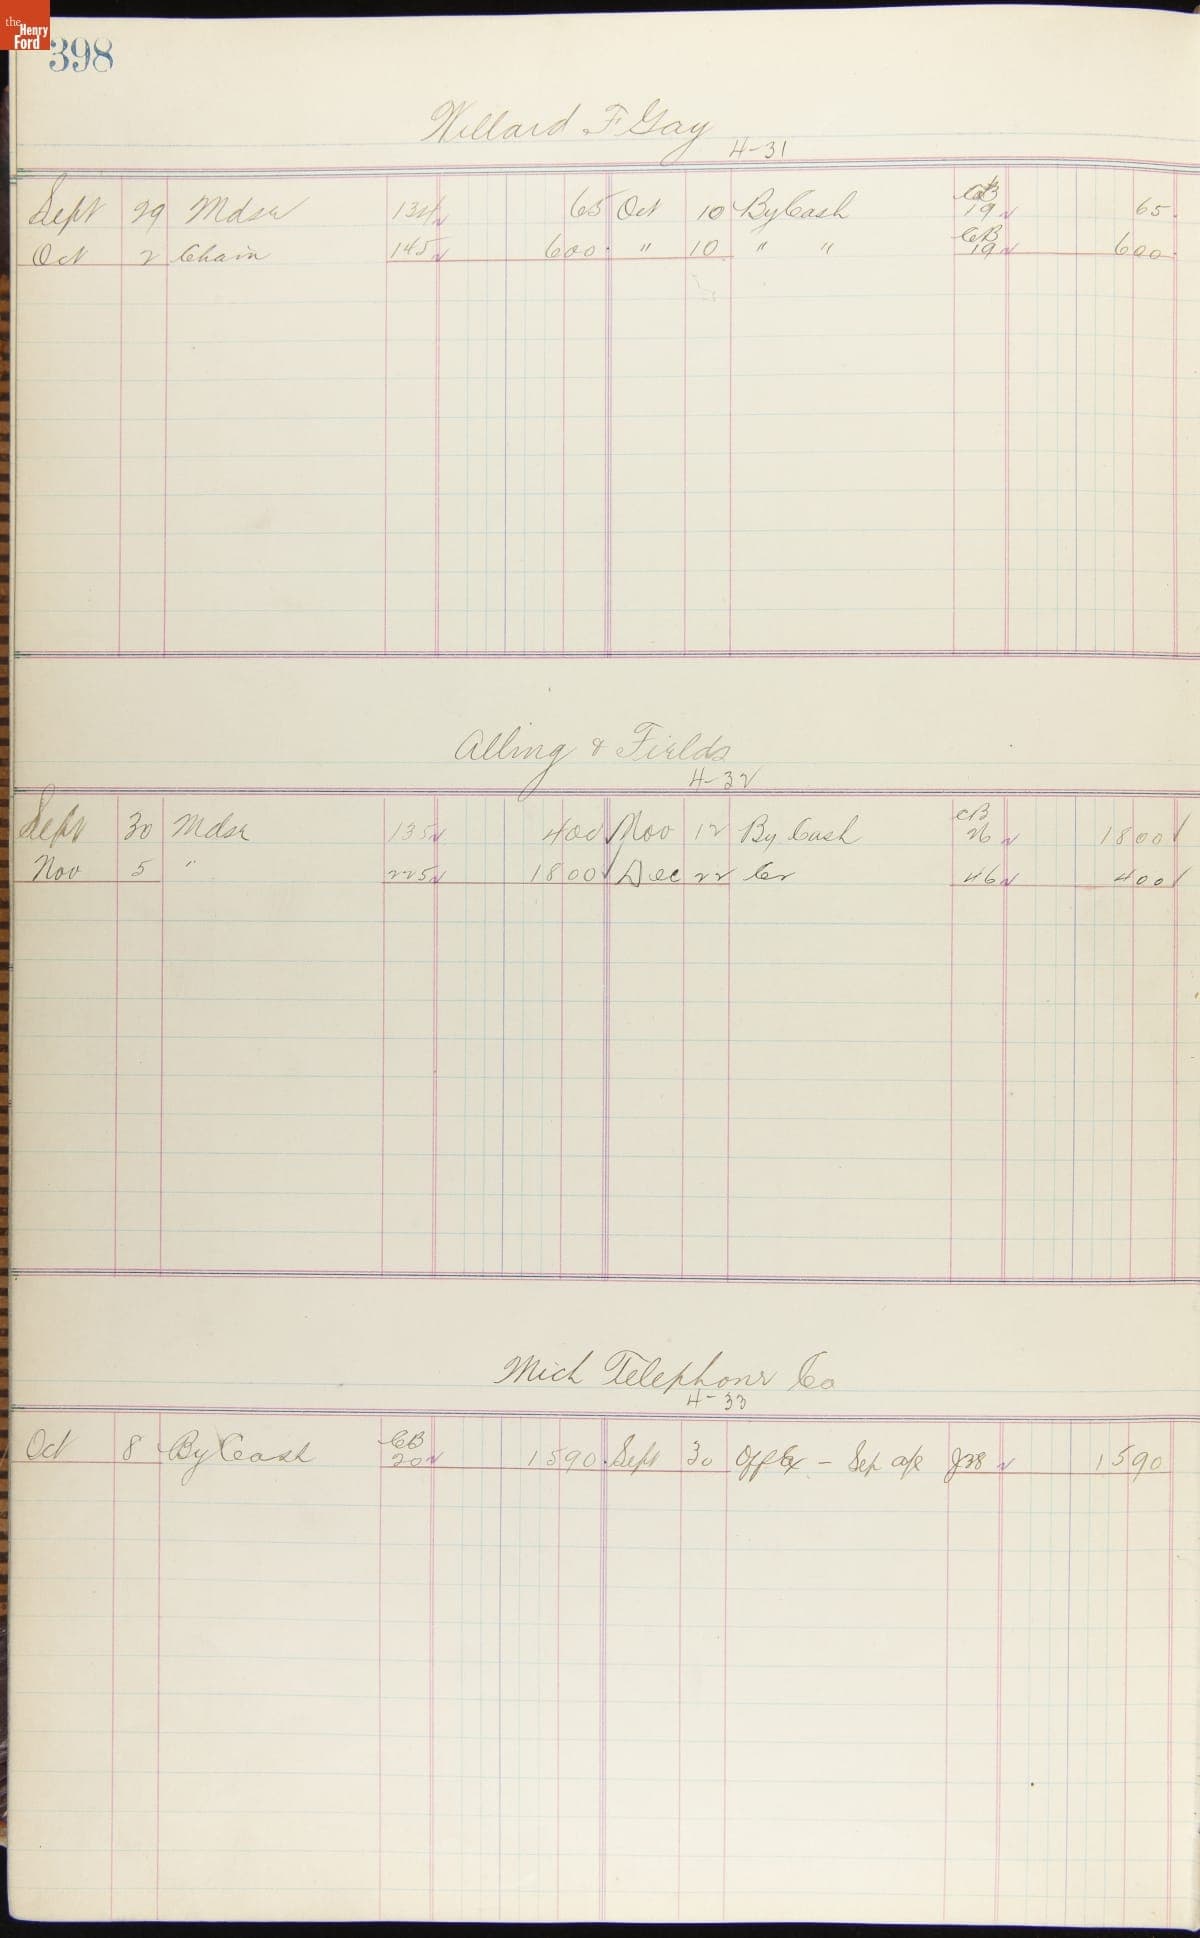 the Henry Ford
398
Willard F Gay
4-31
Sept 29 Mdse 134 65 Oct 10 By Cash CB 19 65
Oct 2 Chain 145 600 " 10 " " CB 19 600
Alling & Fields
4-32
Sept 30 Mdse 135 400 Nov 12 By Cash CB 26 1800
Nov 5 " 225 1800 Dec 22 Cr 46 400
Mich Telephone Co
4-33
Oct 8 By Cash CB 20 1590 Sept 30 Off Ex - Sep a/c J38 1590